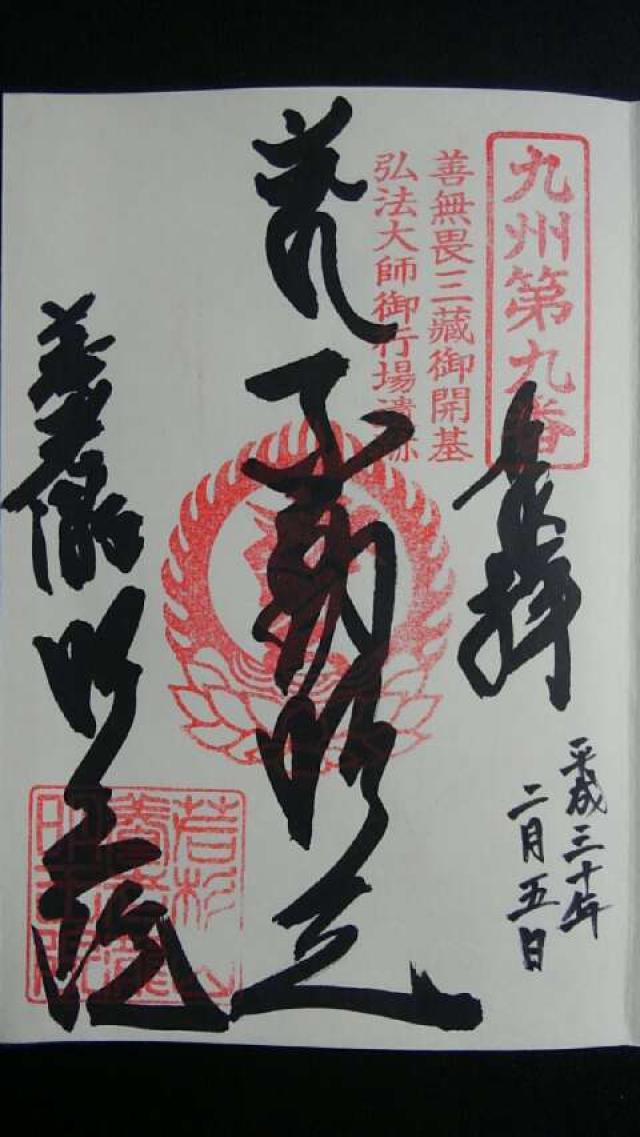 九州第九番
善無畏三藏御開基
弘法大師御行場遺跡
奉拝
平成三十年
二月五日
不動明王
養老瀧
明王院
若杉山
養老瀧
明王院